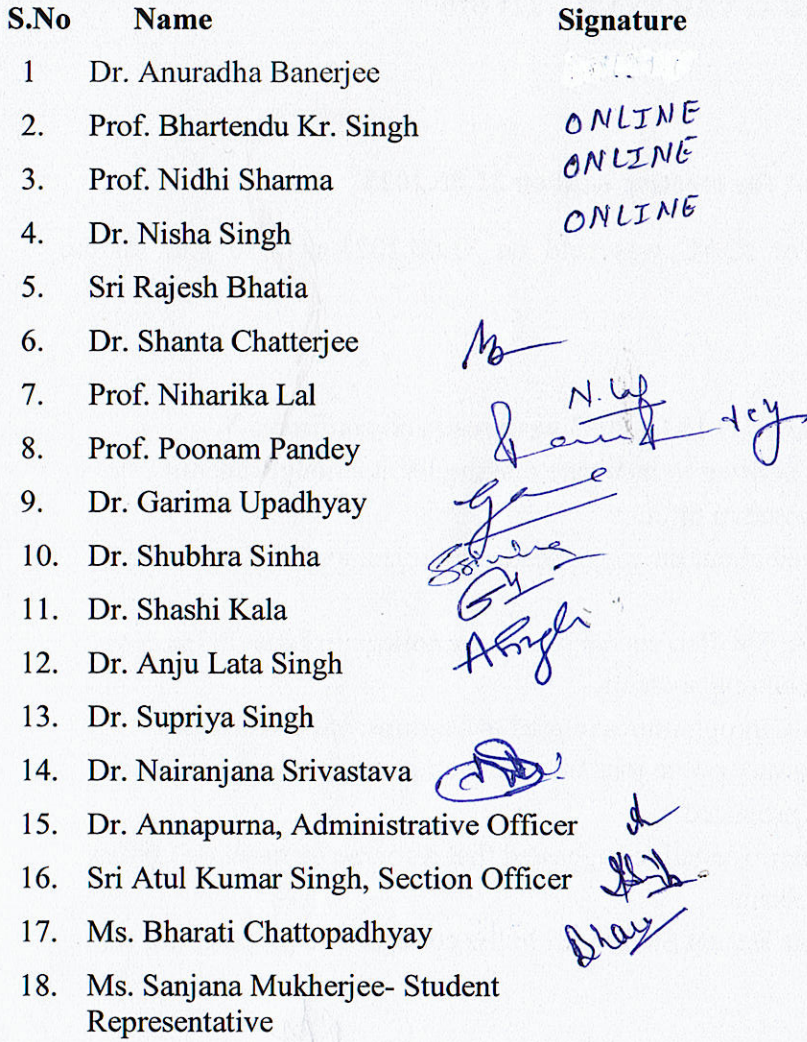 S.No Name Signature
1 Dr. Anuradha Banerjee
2. Prof. Bhartendu Kr. Singh ONLINE
3. Prof. Nidhi Sharma ONLINE
4. Dr. Nisha Singh ONLINE
5. Sri Rajesh Bhatia
6. Dr. Shanta Chatterjee
7. Prof. Niharika Lal N. Lal
8. Prof. Poonam Pandey
9. Dr. Garima Upadhyay
10. Dr. Shubhra Sinha
11. Dr. Shashi Kala
12. Dr. Anju Lata Singh ASingh
13. Dr. Supriya Singh
14. Dr. Nairanjana Srivastava
15. Dr. Annapurna, Administrative Officer
16. Sri Atul Kumar Singh, Section Officer
17. Ms. Bharati Chattopadhyay
18. Ms. Sanjana Mukherjee- Student
Representative